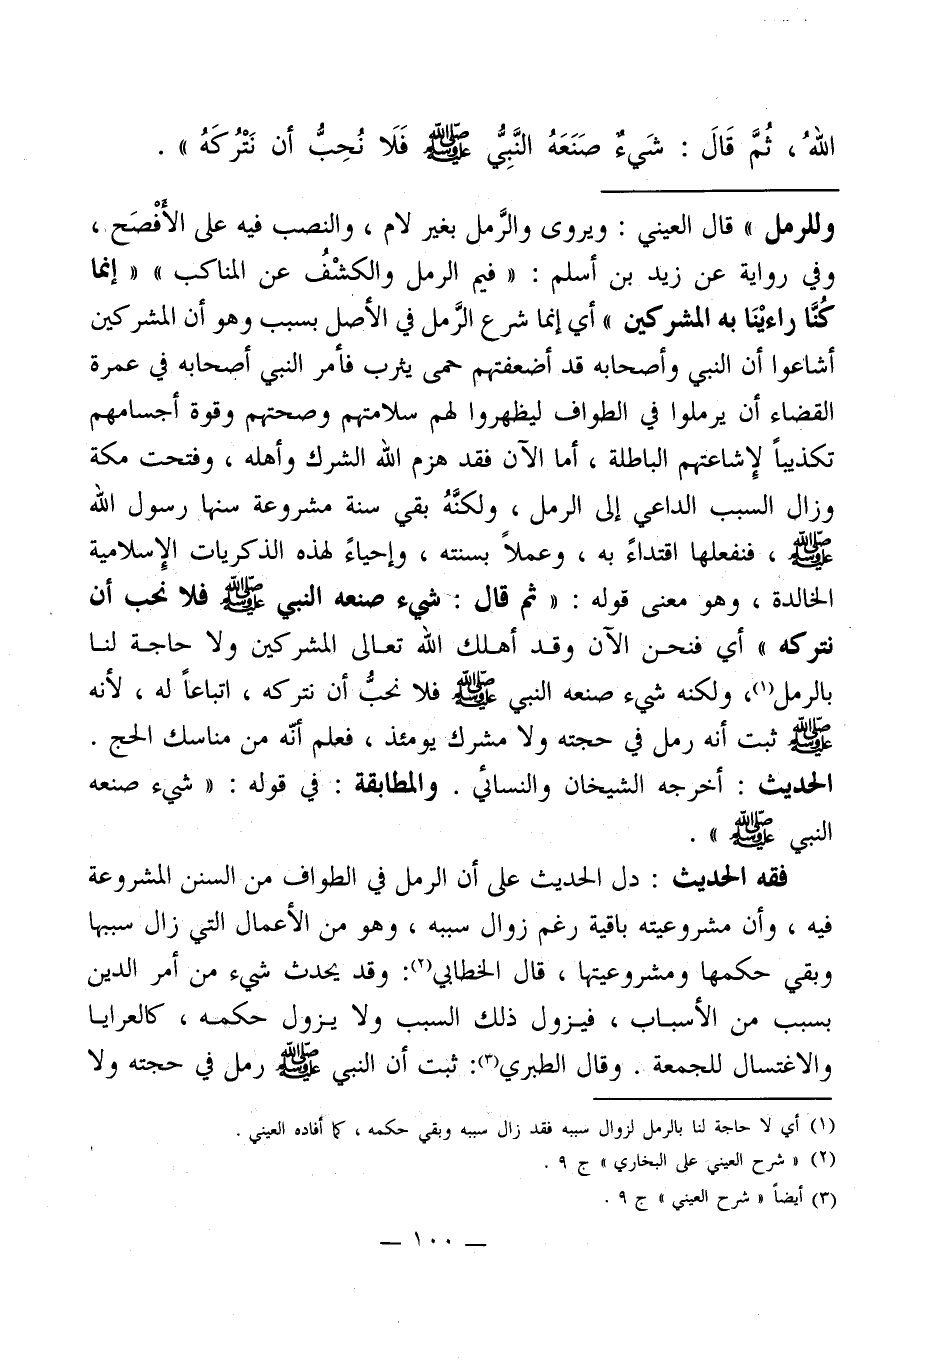 اللهُ ، ثُمَّ قَالَ : شَيءٌ صَنَعَهُ النَّبِيُّ ﷺ فَلَا نُحِبُّ أن نَتْرُكَهُ » .
وللرمل » قال العيني : ويروى والرَّمل بغير لام ، والنصب فيه على الأَفْصَح ،
وفي رواية عن زيد بن أسلم : « فيم الرمل والكشْفُ عن المناكب » « إنما
كُنَّا راءيْنَا به المشركين » أي إنما شرع الرَّمل في الأصل بسبب وهو أن المشركين
أشاعوا أن النبي وأصحابه قد أضعفتهم حمى يثرب فأمر النبي أصحابه في عمرة
القضاء أن يرملوا في الطواف ليظهروا لهم سلامتهم وصحتهم وقوة أجسامهم
تكذيباً لإشاعتهم الباطلة ، أما الآن فقد هزم الله الشرك وأهله ، وفتحت مكة
وزال السبب الداعي إلى الرمل ، ولكنَّهُ بقي سنة مشروعة سنها رسول الله
ﷺ ، فنفعلها اقتداءً به ، وعملاً بسنته ، وإحياءً لهذه الذكريات الإسلامية
الخالدة ، وهو معنى قوله : « ثم قال : شيء صنعه النبي ﷺ فلا نحب أن
نتركه » أي فنحن الآن وقد أهلك الله تعالى المشركين ولا حاجة لنا
بالرمل(١)، ولكنه شيء صنعه النبي ﷺ فلا نحبُّ أن نتركه ، اتباعاً له ، لأنه
ﷺ ثبت أنه رمل في حجته ولا مشرك يومئذ ، فعلم أنّه من مناسك الحج .
الحديث : أخرجه الشيخان والنسائي . والمطابقة : في قوله : « شيء صنعه
النبي ﷺ » .
فقه الحديث : دل الحديث على أن الرمل في الطواف من السنن المشروعة
فيه ، وأن مشروعيته باقية رغم زوال سببه ، وهو من الأعمال التي زال سببها
وبقي حكمها ومشروعيتها ، قال الخطابي(٢): وقد يحدث شيء من أمر الدين
بسبب من الأسباب ، فيزول ذلك السبب ولا يزول حكمه ، كالعرايا
والاغتسال للجمعة . وقال الطبري(٣): ثبت أن النبي ﷺ رمل في حجته ولا
(١) أي لا حاجة لنا بالرمل لزوال سببه فقد زال سببه وبقي حكمه ، كما أفاده العيني .
(٢) « شرح العيني على البخاري » ج ٩ .
(٣) أيضاً « شرح العيني » ج ٩ .
— ١٠٠ —